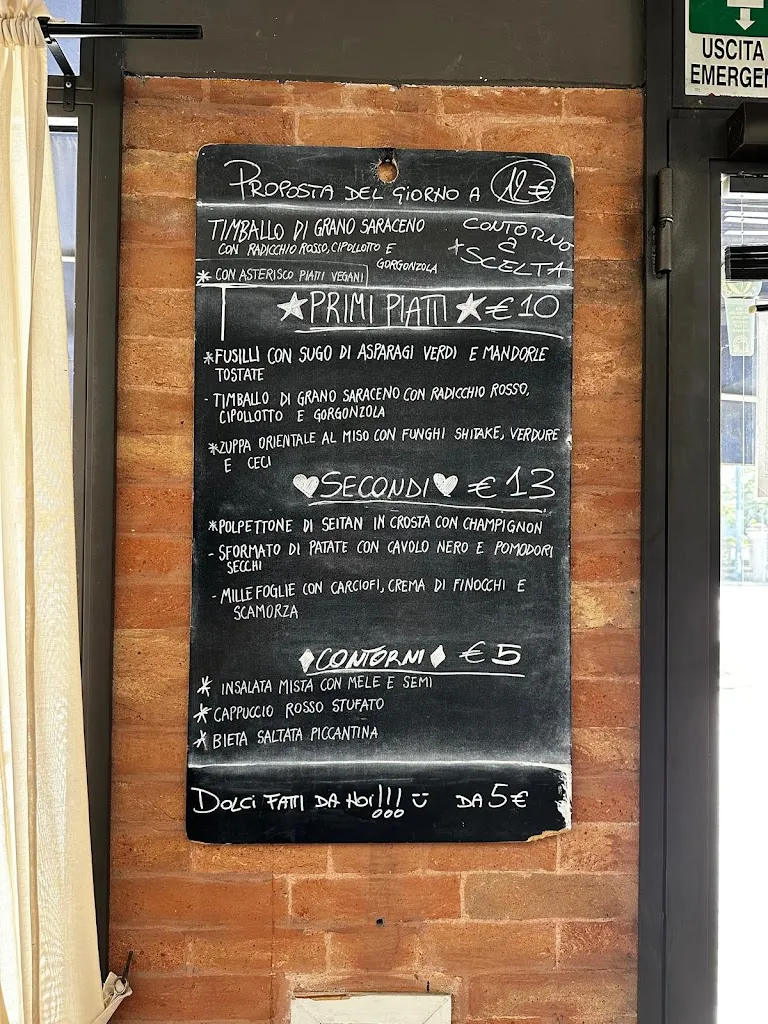 USCITA
EMERGEN
PROPOSTA DEL GIORNO A 12 €
TIMBALLO DI GRANO SARACENO
CON RADICCHIO ROSSO, CIPOLLOTTO E
GORGONZOLA
+ CONTORNO
A
SCELTA
* CON ASTERISCO PIATTI VEGANI
★ PRIMI PIATTI ★ € 10
*FUSILLI CON SUGO DI ASPARAGI VERDI E MANDORLE
TOSTATE
- TIMBALLO DI GRANO SARACENO CON RADICCHIO ROSSO,
CIPOLLOTTO E GORGONZOLA
*ZUPPA ORIENTALE AL MISO CON FUNGHI SHITAKE, VERDURE
E CECI
♥SECONDI♥ € 13
*POLPETTONE DI SEITAN IN CROSTA CON CHAMPIGNON
- SFORMATO DI PATATE CON CAVOLO NERO E POMODORI
SECCHI
- MILLEFOGLIE CON CARCIOFI, CREMA DI FINOCCHI E
SCAMORZA
♦CONTORNI♦ € 5
* INSALATA MISTA CON MELE E SEMI
* CAPPUCCIO ROSSO STUFATO
* BIETA SALTATA PICCANTINA
DOLCI FATTI DA NOI!!! ü DA 5 €